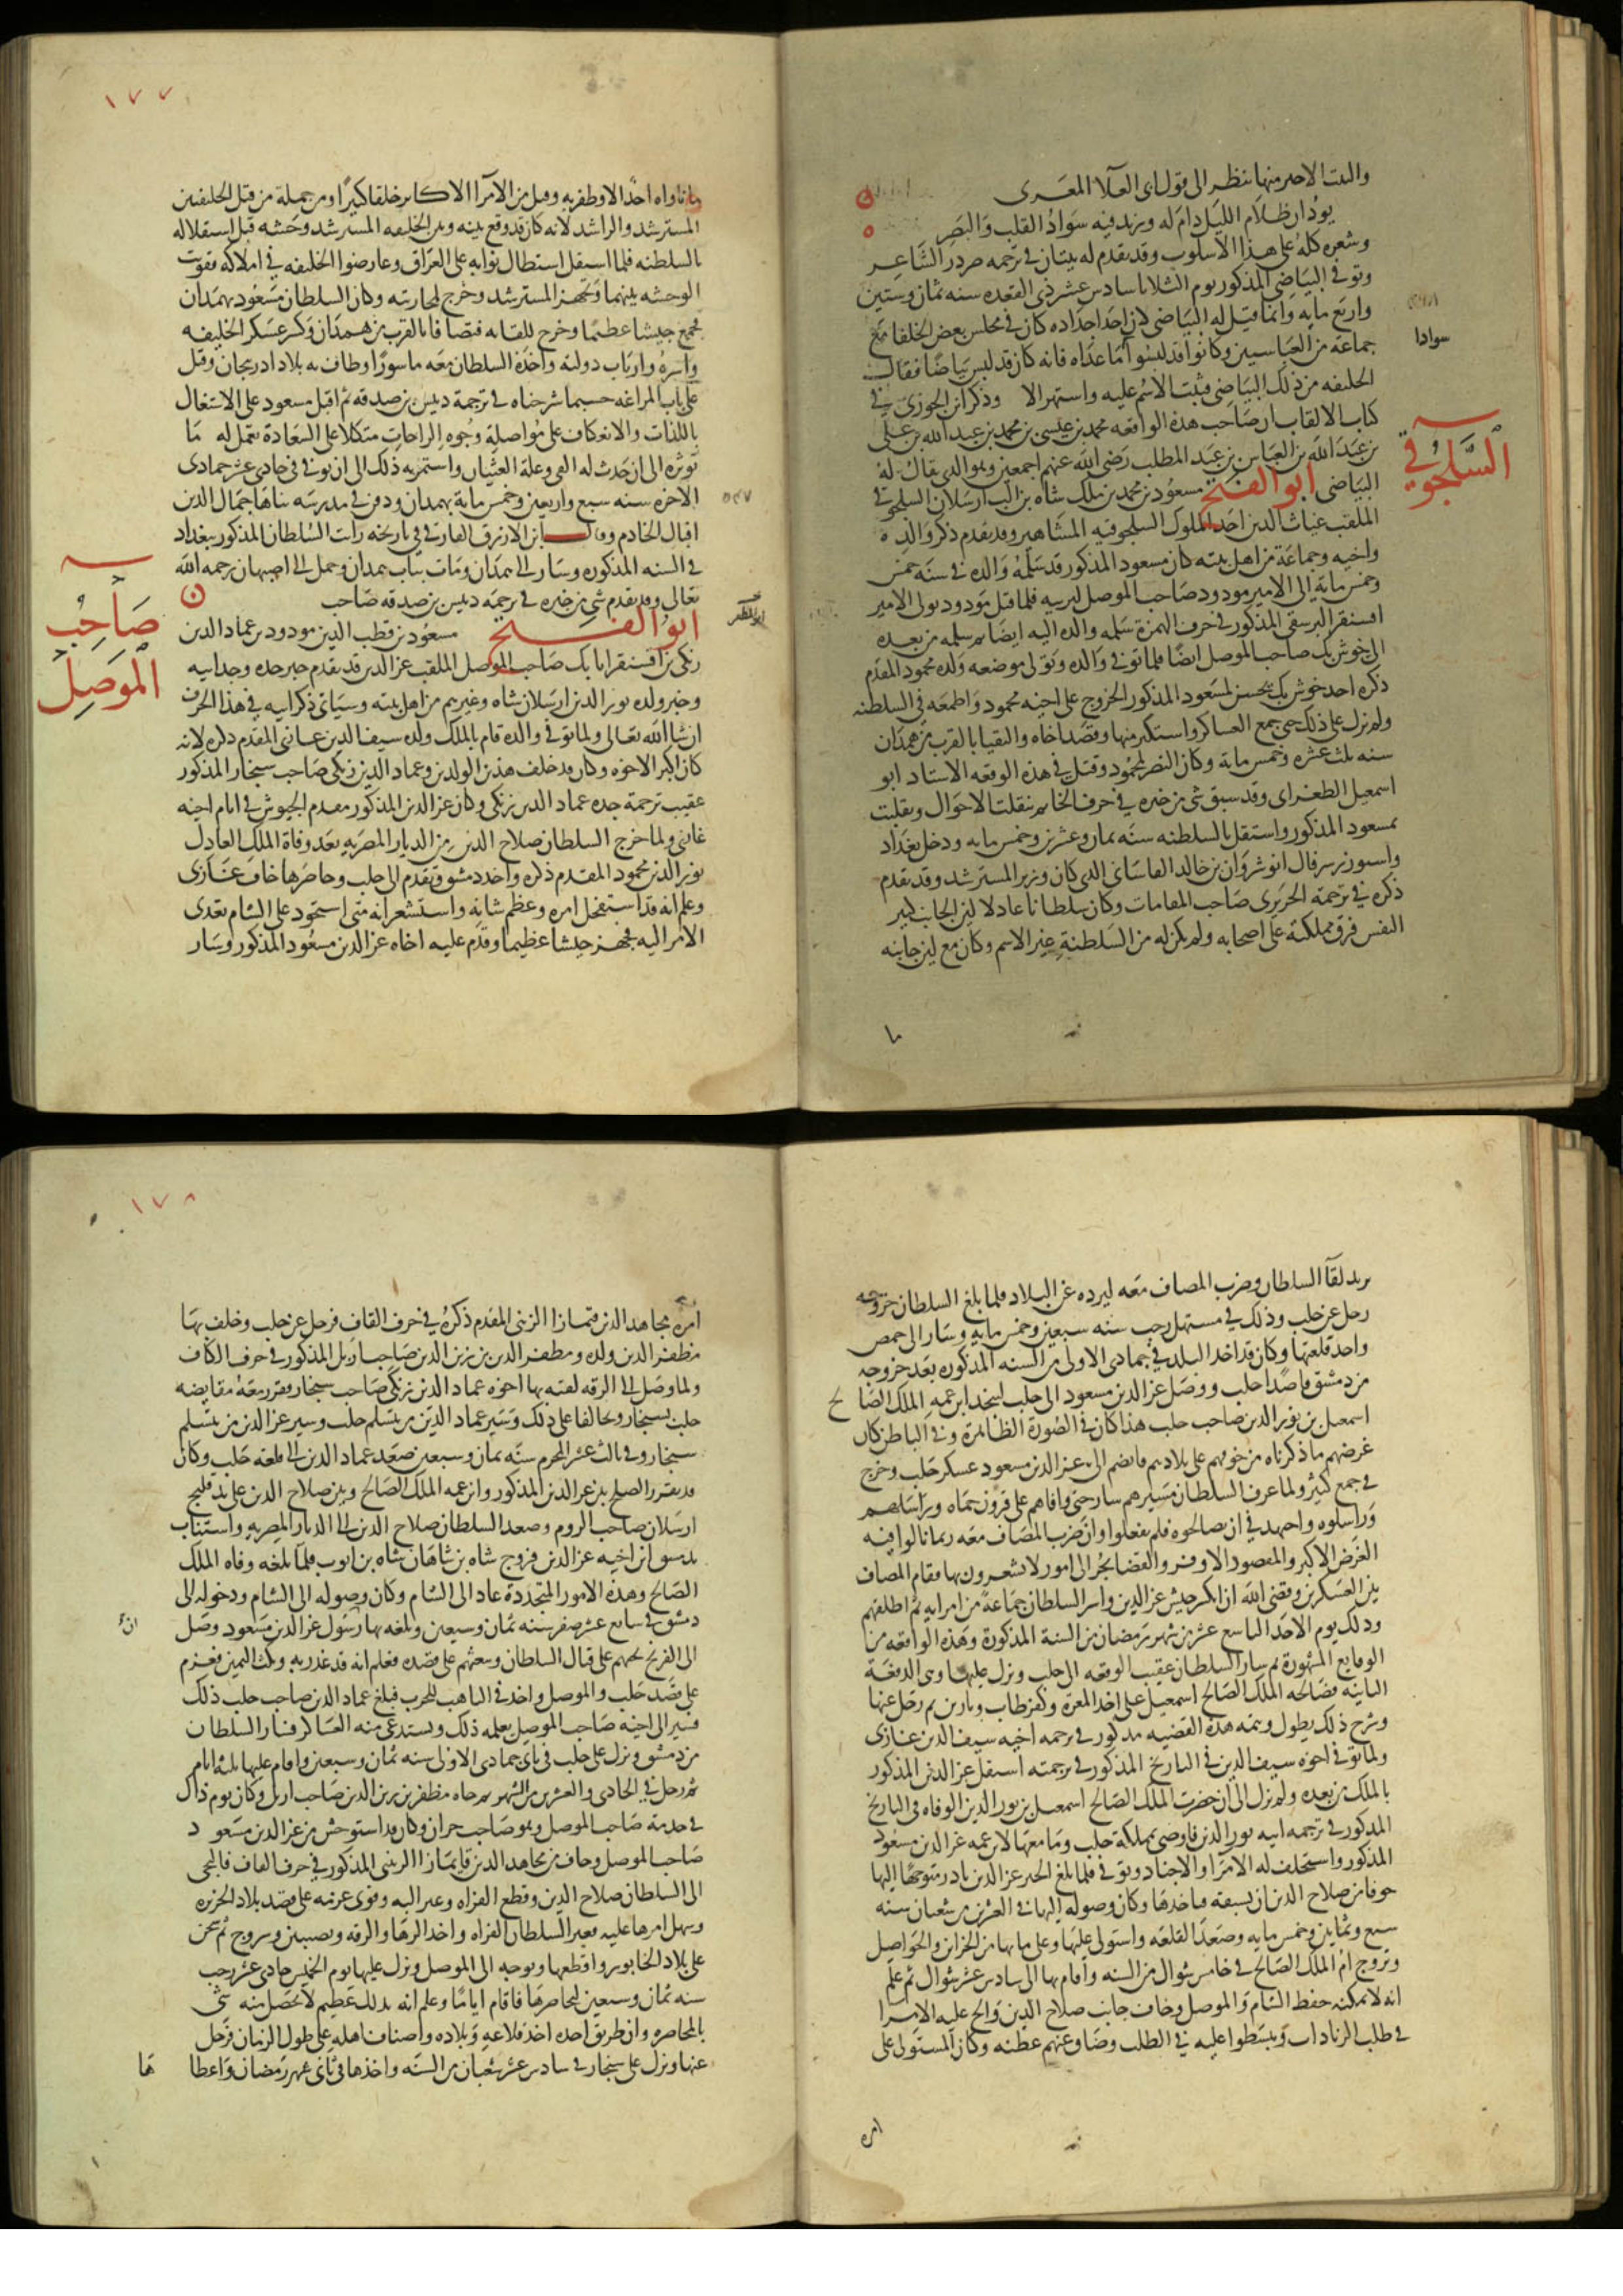 والبيت الاخير منها ينظر الى قول ابى العلآ المعرى
يود ان ظلام الليل دام له وزيد فيه سواد القلب والبصر
وشعره كله على هذا الاسلوب وقد تقدم له بيتان فى ترجمه صردر الشاعر
وتوفى البياضى المذكور يوم الثلاثا سادس عشر ذى القعده سنه ثمان وستين
واربع مايه وانما قيل له البياضى لان احد اجداده كان فى مجلس بعض الخلفا مع
جماعه من العباسيين وكانوا قد لبسوا ما عداه فانه كان قد لبس بياضا فقال
سوادا
الخليفه من ذلك البياضى فثبت الاسم عليه واشتهر الا وذكر ابن الجوزى فى
كتاب الالقاب ان صاحب هذه الواقعه محمد بن عيسى بن محمد بن عبد الله بن على
بن عبد الله بن العباس بن عبد المطلب رضى الله عنهم اجمعين وهو الذى يقال له
السلجوقي
البياضى ابو الفتح مسعود بن محمد بن ملك شاه بن الب ارسلان السلجوقى
الملقب غياث الدين احد الملوك السلجوقيه المشاهير وقد تقدم ذكر والده
واخيه وجماعة من اهل بيته كان مسعود المذكور قد سلمه والده فى سنه خمس
وخمس مايه الى الامير مودود صاحب الموصل ليربيه فلما قتل مودود وتولى الامير
اقسنقر البرسقى المذكور فى حرف الهمزة سلمه والده اليه ايضا ثم سلمه من بعده
الى جوش بك صاحب الموصل ايضا فلما توفى والده وتولى موضعه ولده محمود المقدم
ذكره اخذ جوش بك يحسن لمسعود المذكور الخروج على اخيه محمود واطمعه فى السلطنه
ولم يزل على ذلك حتى جمع العساكر واستكثر منها وقصد اخاه والتقيا بالقرب من همدان
سنه ثلث عشره وخمس مايه وكان النصر لمحمود وقتل فى هذه الوقعه الاستاد ابو
اسمعيل الطغراى وقد سبق شى من خبره فى حرف الحا ثم تنقلت الاحوال وتقلبت
بمسعود المذكور واستقل بالسلطنه سنه ثمان وعشرين وخمس مايه ودخل بغداد
واستوزر شرف الدين انوشروان بن خالد القاسانى الذى كان وزير المسترشد وقد تقدم
ذكره فى ترجمة الحريرى صاحب المقامات وكان سلطانا عادلا لين الجانب كبير
النفس فرق مملكته على اصحابه ولم يكن له من السلطنة غير الاسم وكان مع لين جانبه
ما
١٧٧
ما ناواه احد الا وظفر به وقتل من الامرآ الاكابر خلقا كثيرا ومن جملة من قتل الخليفتين
المسترشد والراشد لانه كان قد وقع بينه وبين الخليفه المسترشد وحشه قبل استقلاله
بالسلطنه فلما استقل استطال نوابه على العراق وعارضوا الخليفه فى املاكه فقويت
الوحشه بينهما وتجهز المسترشد وخرج لمحاربته وكان السلطان مسعود بهمدان
فجمع جيشا عظيما وخرج للقايه فتصافا بالقرب من همدان وكسر عسكر الخليفه
واسره وارباب دولته واخذه السلطان معه ماسورا وطاف به بلاد ادربيجان وقتل
على باب المراغه حسبما شرحناه فى ترجمة دبيس بن صدقه ثم اقبل مسعود على الاشتغال
باللذات والانعكاف على مواصلة وجوه الراحات متكلا على السعادة تعمل له ما
يوثره الى ان حدث له القى وعلة الغثيان واستمر به ذلك الى ان توفى فى حادى عشر جمادى
الاخره سنه سبع واربعين وخمس مايه بهمدان ودفن فى مدرسه بناها جمال الدين
٥٤٧
اقبال الخادم وقال ابن الازرق الفارقى فى تاريخه رايت السلطان المذكور ببغداد
فى السنه المذكوره وسار الى همدان ومات بباب همدان وحمل الى اصبهان رحمه الله
تعالى وقد تقدم شى من خبره فى ترجمه دبيس بن صدقه صاحب
صاحب الموصل
ابو الفتح مسعود بن قطب الدين مودود بن عماد الدين
ابو المظفر
زنكى بن اقسنقر اتابك صاحب الموصل الملقب عز الدين قد تقدم خبر جده وجد ابيه
وخبر ولده نور الدين ارسلان شاه وغيرهم من اهل بيته وسياتى ذكر ابيه فى هذا الحرف
ان شا الله تعالى ولما توفى والده قام بالملك ولده سيف الدين غازى المقدم ذكره لانه
كان اكبر الاخوه وكان قد خلف هذين الولدين وعماد الدين زنكى صاحب سنجار المذكور
عقيب ترجمة جده عماد الدين زنكى وكان عز الدين المذكور مقدم الجيوش فى ايام اخيه
غازى ولما خرج السلطان صلاح الدين من الديار المصريه بعد وفاة الملك العادل
نور الدين محمود المقدم ذكره واخد دمشق وتقدم الى حلب وحاصرها خاف غازى
وعلم انه قد استفحل امره وعظم شانه واستشعر انه متى استحود على الشام تعدى
الامر اليه فجهز جيشا عظيما وقدم عليه اخاه عز الدين مسعود المذكور وسار
يريد لقآ السلطان وضرب المصاف معه ليرده عن البلاد فلما بلغ السلطان خروجه
رحل عن حلب وذلك فى مستهل رجب سنه سبعين وخمس مايه وسار الى حمص
واخد قلعتها وكان قد اخد البلد فى جمادى الاولى من السنه المذكوره بعد خروجه
من دمشق قاصدا حلب ووصل عز الدين مسعود الى حلب لينجد ابن عمه الملك الصالح
اسمعيل بن نور الدين صاحب حلب هذا كان فى الصورة الظاهرة وفى الباطن كان
غرضهم ما ذكرناه من خوفهم على بلادهم فانضم الى عز الدين مسعود عسكر حلب وخرج
فى جمع كثير ولما عرف السلطان مسيرهم سار حتى وافاهم على قرون حماه وراسلهم
وراسلوه واجتهد فى ان يصالحوه فلم يفعلوا وان ضرب المصاف معه ربما نالوا فيه
الغرض الاكبر والمقصود الاوفر والقضا يجر الى امور لا يشعرون بها فقام المصاف
بين العسكرين وقضى الله ان انكسر جيش عز الدين واسر السلطان جماعة من امرايه ثم اطلقهم
وذلك يوم الاحد التاسع عشر من شهر رمضان من السنة المذكورة وهذه الواقعه من
الوقايع المشهورة ثم سار السلطان عقيب الوقعه الى حلب ونزل عليها وهى الدفعة
الثانيه فصالحه الملك الصالح اسمعيل على اخد المعرة وكفرطاب وبارين ثم رحل عنها
وشرح ذلك يطول وتتمه هذه القضيه مذكور فى ترجمه اخيه سيف الدين غازى
ولما توفى اخوه سيف الدين فى التاريخ المذكور فى ترجمته استقل عز الدين المذكور
بالملك من بعده ولم يزل الى ان حضرت الملك الصالح اسمعيل بن نور الدين الوفاه فى التاريخ
المذكور فى ترجمه ابيه نور الدين فاوصى بمملكة حلب وما معها لابن عمه عز الدين مسعود
المذكور واستحلف له الامرا والاجناد وتوفى فلما بلغ الخبر عز الدين بادر متوجها اليها
خوفا من صلاح الدين ان يسبقه فياخذها وكان وصوله اليها فى العشرين من شعبان سنه
سبع وثمانين وخمس مايه وصعد القلعه واستولى عليها وعلى ما بها من الخزاين والحواصل
وتزوج ام الملك الصالح فى خامس شوال من السنه واقام بها الى سادس عشر شوال ثم علم
انه لا يمكنه حفظ الشام والموصل وخاف جانب صلاح الدين والح عليه الامرا
فى طلب الزيادات وتبسطوا عليه فى الطلب وضاق عنهم عطنه وكان المستولى على
امره
١٧٨
امره مجاهد الدين قيماز الزينى المقدم ذكره فى حرف القاف فرحل عن حلب وخلف بها
مظفر الدين ولده ومظفر الدين بن زين الدين صاحب اربل المذكور فى حرف الكاف
ولما وصل الى الرقه لقيه بها اخوه عماد الدين زنكى صاحب سنجار فقرر معه مقايضه
حلب بسنجار وتحالفا على ذلك وسير عماد الدين من يتسلم حلب وسير عز الدين من يتسلم
سنجار وفى ثالث عشر المحرم سنه ثمان وسبعين صعد عماد الدين الى قلعه حلب وكان
قد تقرر الصلح بين عز الدين المذكور وابن عمه الملك الصالح وبين صلاح الدين على يد قليج
ارسلان صاحب الروم وصعد السلطان صلاح الدين الى الديار المصريه واستناب
بدمشق ابن اخيه عز الدين فروخ شاه بن شاهان شاه بن ايوب فلما بلغه وفاه الملك
الصالح وهذه الامور المتجددة عاد الى الشام وكان وصوله الى الشام ودخوله الى
دمشق فى سابع عشر صفر سنه ثمان وسبعين وبلغه بها ان رسول عز الدين مسعود وصل
الى الفرنج يحثهم على قتال السلطان ويبعثهم على قصده فعلم انه قد غدر به ونكث اليمين فعزم
على قصد حلب والموصل واخذ فى التاهب للحرب فبلغ عماد الدين صاحب حلب ذلك
فسير الى اخيه صاحب الموصل يعلمه ذلك ويستدعى منه العساكر فسار السلطان
من دمشق ونزل على حلب فى ثانى جمادى الاولى سنه ثمان وسبعين واقام عليها ثلثه ايام
ثم رحل فى الحادى والعشرين من الشهر ثم جاه مظفر بن زين الدين صاحب اربل وكان يوم ذاك
فى خدمة صاحب الموصل وهو صاحب حران وكان قد استوحش من عز الدين مسعود
صاحب الموصل وخاف من مجاهد الدين قايماز الزينى المذكور فى حرف القاف فالتجى
الى السلطان صلاح الدين وقطع الفراه وعبر اليه وقوى عزمه على قصد بلاد الجزيره
وسهل امرها عليه فعبر السلطان الفراه واخد الرها والرقه ونصيبين وسروج ثم شحن
على بلاد الخابور واقطعها وتوجه الى الموصل ونزل عليها يوم الخميس حادى عشر رجب
سنه ثمان وسبعين ليحاصرها فاقام اياما وعلم انه بلد عظيم لا يحصل منه شى
بالمحاصره وان طريق اخده اخذ قلاعه وبلاده واضعاف اهله على طول الزمان فرحل
عنها ونزل على سنجار فى سادس عشر شعبان من السنه واخذها فى ثانى شهر رمضان واعطاها